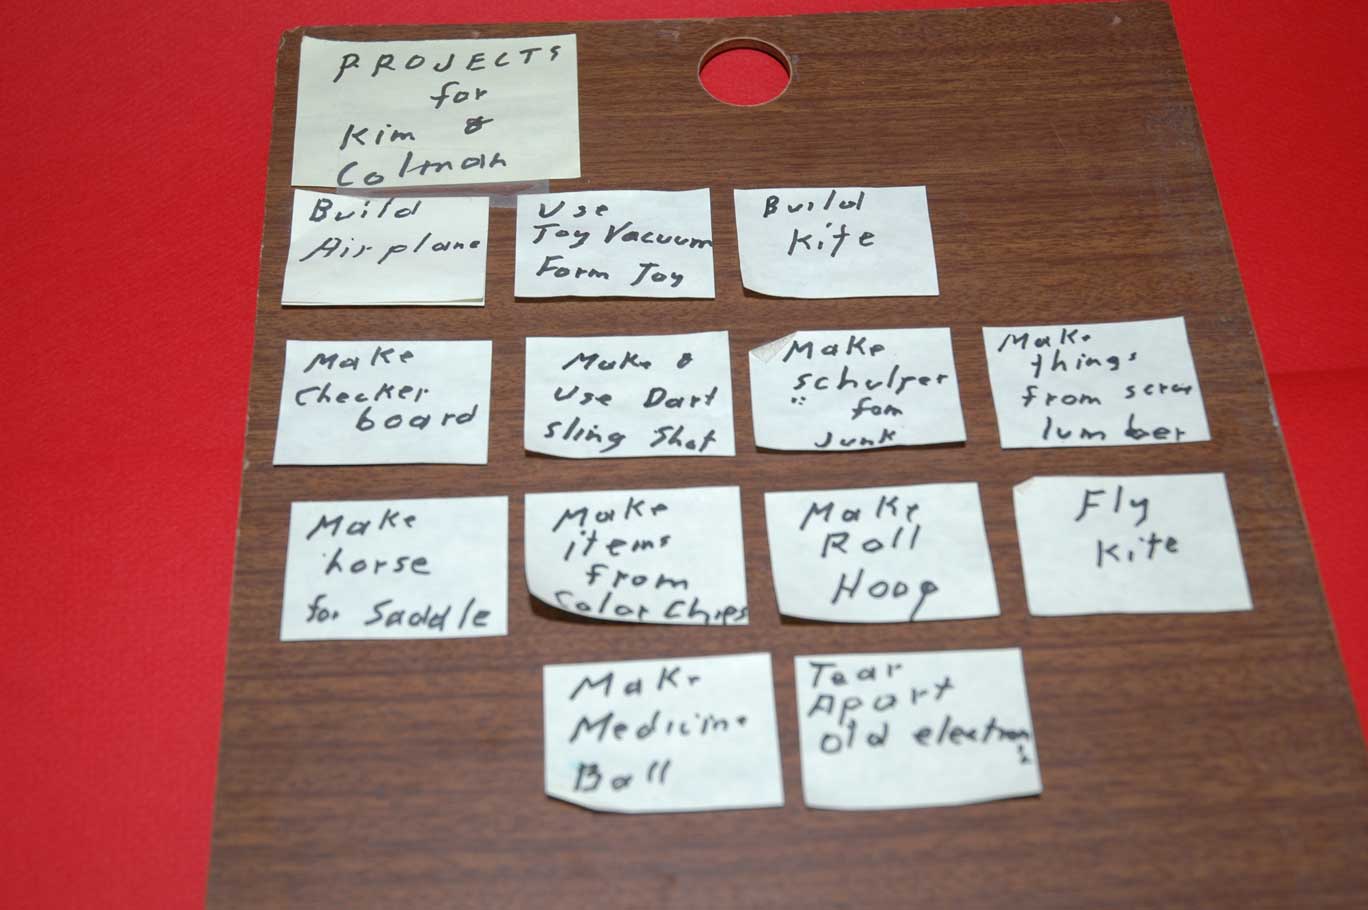 PROJECTS
for
Kim &
Colman
Build
Airplane
Use
Toy Vacuum
Form Toy
Build
Kite
Make
Checker
board
Make &
Use Dart
Sling Shot
Make
schulper
fom
Junk
Make
things
from scrap
lumber
Make
horse
for Saddle
Make
items
from
Color Chips
Make
Roll
Hoop
Fly
Kite
Make
Medicine
Ball
Tear
Apart
old